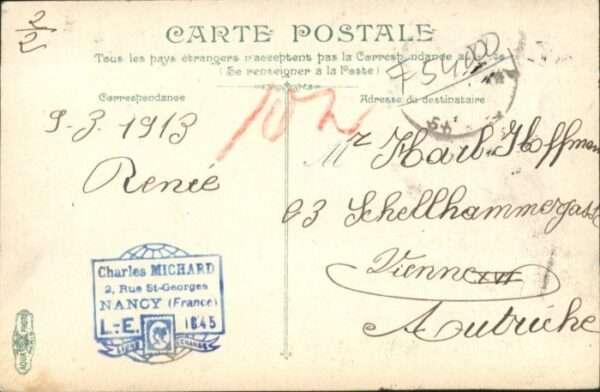 2/2
CARTE POSTALE
Tous les pays étrangers n'acceptent pas la Correspondance au
(Se renseigner à la Poste)
Correspondance
Adresse du destinataire
102
9-3-1913
Renée
Mr Karl Hoffmann
03 Schellhammergasse
Vienne XVI
Autriche
Charles MICHARD
2, Rue St-Georges
NANCY (France)
L.-E. 1645